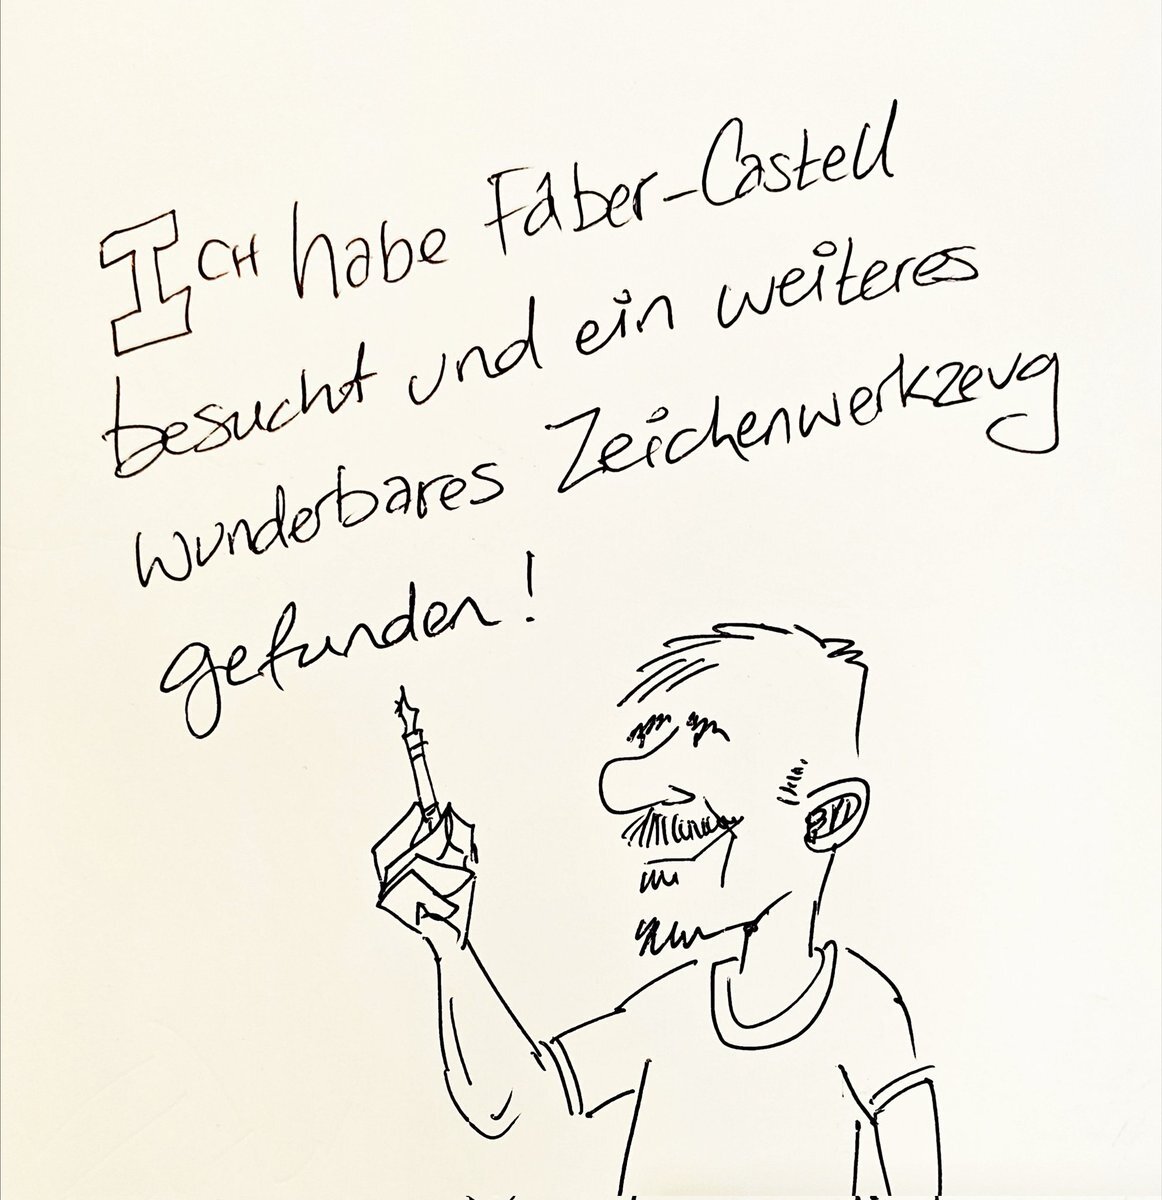 ICH habe Faber-Castell
besucht und ein weiteres
wunderbares Zeichenwerkzeug
gefunden!